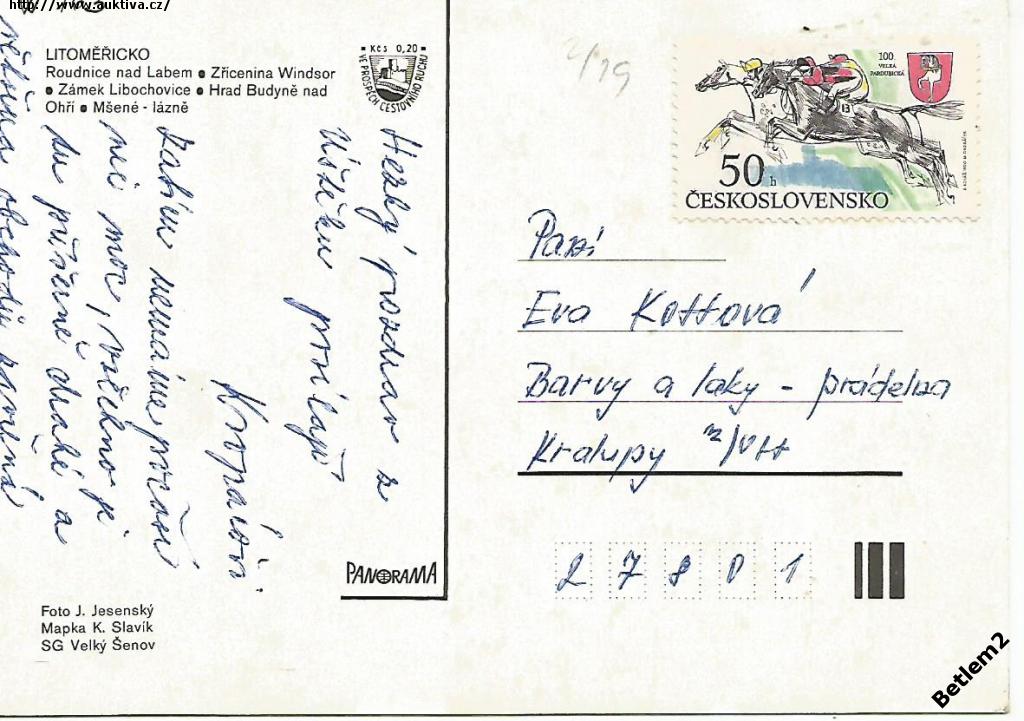 http://www.auktiva.cz/
LITOMĚŘICKO
Roudnice nad Labem ● Zřícenina Windsor
● Zámek Libochovice ● Hrad Budyně nad
Ohří ● Mšené - lázně
Kčs 0,20
VE PROSPĚCH CESTOVNÍHO RUCHU
2/19
100.
VELKÁ
PARDUBICKÁ
13
50 h
ČESKOSLOVENSKO
Hezký pozdrav z
Úštěku posílají
Kropáčovi
Zatím nemáme
moc, všechno je
tu příšerně drahé a
většina obchodů
Paní
Eva Kottová
Barvy a laky - prádelna
Kralupy n/Vlt
27801
PANORAMA
Foto J. Jesenský
Mapka K. Slavík
SG Velký Šenov
Betlem2